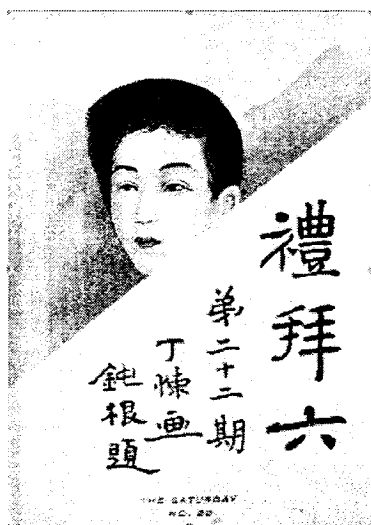 禮拜六
第二十二期
丁悚画
鈍根題
THE SATURDAY
NO. 22